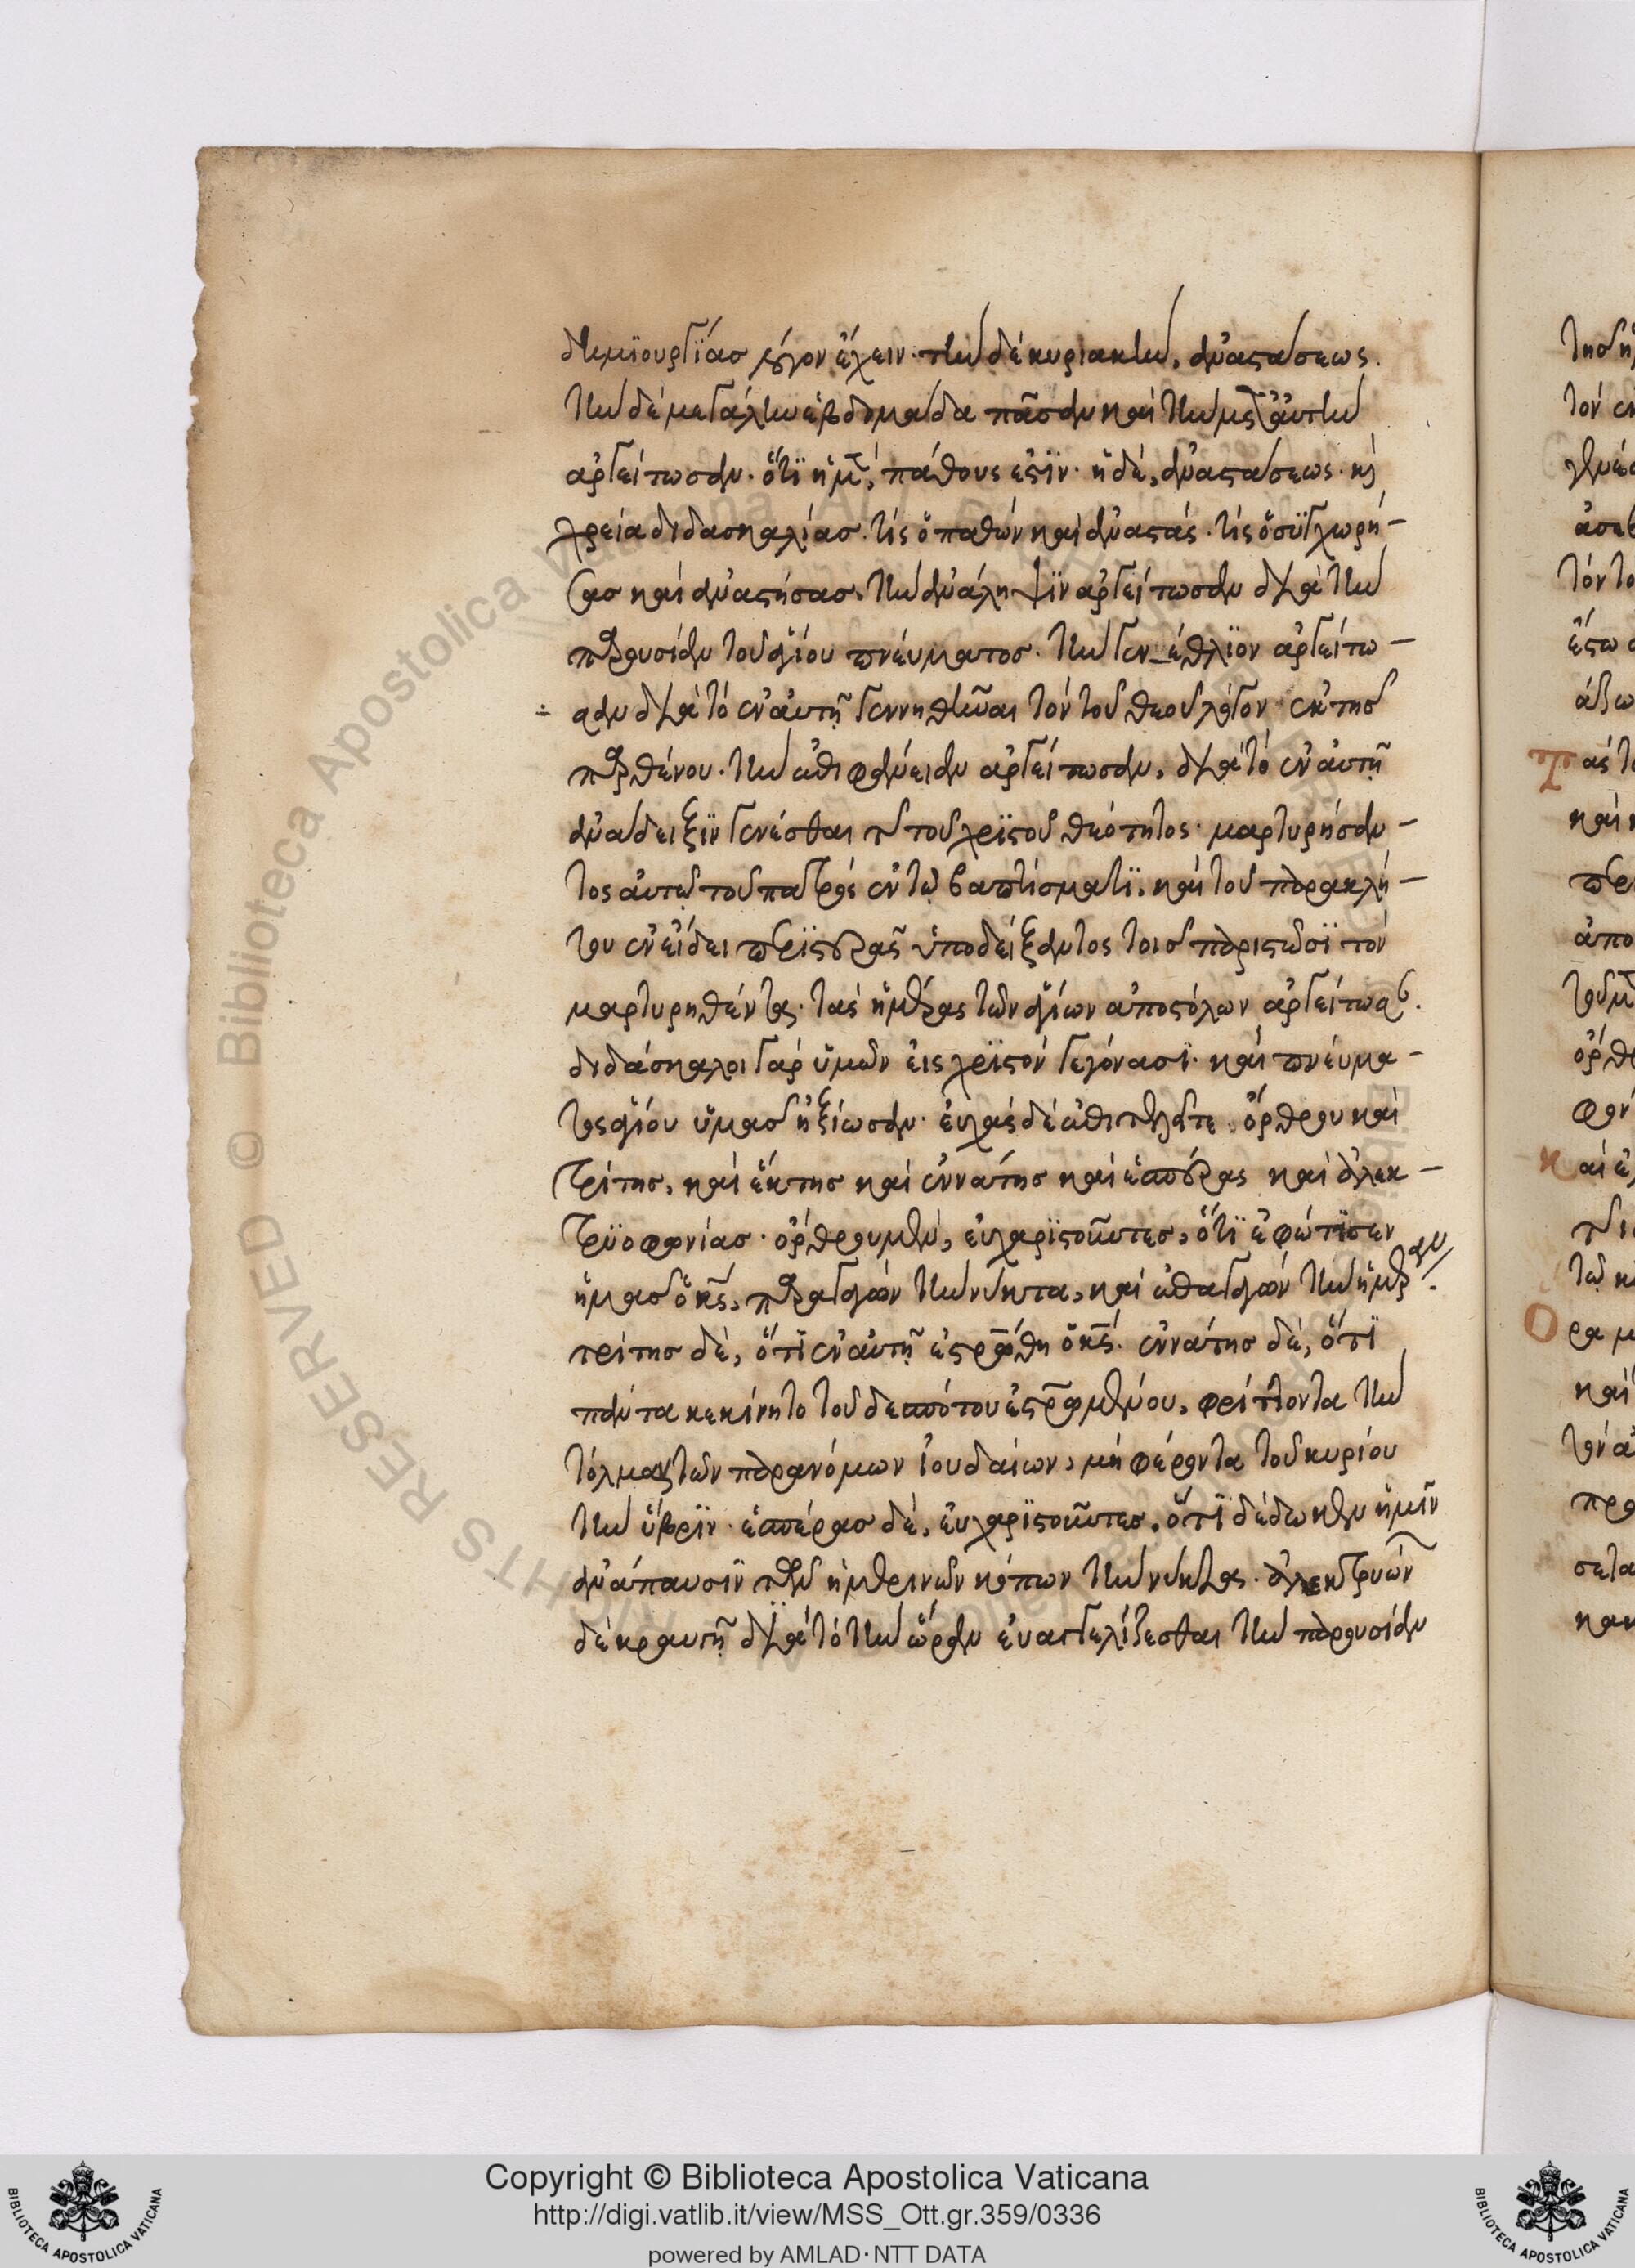 δημϊουργίας λόγον ἔχειν· τὴν δὲ κυριακὴν, ἀναστάσεως.
τὴν δὲ μεγάλην ἑβδομάδα πᾶσαν καὶ τὴν μετ' αὐτὴν
ἀργείτωσαν· ὅτϊ ἡ μὲν, πάθους ἐστϊν· ἡ δὲ, ἀναστάσεως· καὶ
χρεία διδασκαλίας· τίς ὁ παθών καὶ ἀναστάς· τίς ὁ συγχωρή-
σας καὶ ἀναστήσας· τὴν ἀνάληψϊν ἀργείτωσαν διὰ τὴν
παρουσίαν τοῦ ἁγίου πνεύματος· τὴν γενέθλϊον ἀργείτω-
σαν διὰ τὸ ἐν αὐτῇ γεννηθῆναι τὸν τοῦ θεοῦ λόγον ἐκ τῆς
παρθένου· τὴν ἐπιφάνειαν ἀργείτωσαν, διὰ τὸ ἐν αὐτῇ
ἀνάδειξϊν γενέσθαι τῆς τοῦ χρϊστοῦ θεότητος· μαρτυρήσαν-
τος αὐτῷ τοῦ πατρὸς ἐν τῷ βαπτίσματϊ· καὶ τοῦ παρακλή-
του ἐν εἴδει περϊστερᾶς ὑποδείξαντος τοῖς παρεστῶσϊ τὸν
μαρτυρηθέντα· τὰς ἡμέρας τῶν ἁγίων ἀποστόλων ἀργείτωσαν.
διδάσκαλοι γὰρ ὑμῶν εἰς χρϊστὸν γεγόνασϊ· καὶ πνεύμα-
τος ἁγίου ὑμᾶς ἠξίωσαν· εὐχὰς δὲ ἐπιτελεῖτε ὄρθρου καὶ
τρίτης, καὶ ἕκτης καὶ ἐννάτης καὶ ἑσπέρας καὶ ἀλεκ-
τρϋοφωνίας· ὄρθρου μὲν, εὐχαρϊστοῦντες, ὅτϊ ἐφώτϊσεν
ἡμᾶς ὁ κς, παραγαγὼν τὴν νύκτα, καὶ ἐπαγαγὼν τὴν ἡμέραν·
τρίτης δὲ, ὅτϊ ἐν αὐτῇ ἐστρώθη ὁ κς· ἐννάτης δὲ, ὅτϊ
πάντα κεκίνητο τοῦ δεσπότου ἐσταυρωμένου, φρίττοντα τὴν
τόλμαν τῶν παρανόμων ἰουδαίων, μὴ φέροντα τοῦ κυρίου
τὴν ὕβρϊν· ἑσπέρας δὲ, εὐχαρϊστοῦντες, ὅτϊ δέδωκεν ἡμῖν
ἀνάπαυσϊν τῶν ἡμερινῶν κόπων τὴν νύκτα· ἀλεκτρυών
δὲ κραυγῇ διὰ τὸ τὴν ὥραν εὐαγγελίζεσθαι τὴν παρουσίαν
Copyright © Biblioteca Apostolica Vaticana
http://digi.vatlib.it/view/MSS_Ott.gr.359/0336
powered by AMLAD·NTT DATA